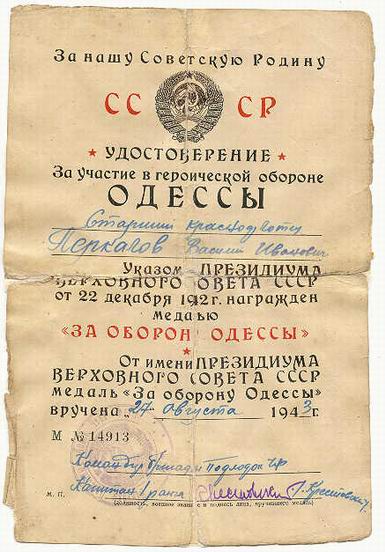 За нашу Советскую Родину
СССР
УДОСТОВЕРЕНИЕ
За участие в героической обороне
ОДЕССЫ
Старший краснофлотец
Перкагов Василий Иванович
Указом ПРЕЗИДИУМА
ВЕРХОВНОГО СОВЕТА СССР
от 22 декабря 1942 г. награжден
медалью
«ЗА ОБОРОН ОДЕССЫ»
От имени ПРЕЗИДИУМА
ВЕРХОВНОГО СОВЕТА СССР
медаль «За оборону Одессы»
вручена „27 августа 1943 г.
М № 14913
Командир бригады Подлодок ЧФ
Капитан I ранга
М. П. (должность, воинское звание и подпись лица, вручившего медаль)